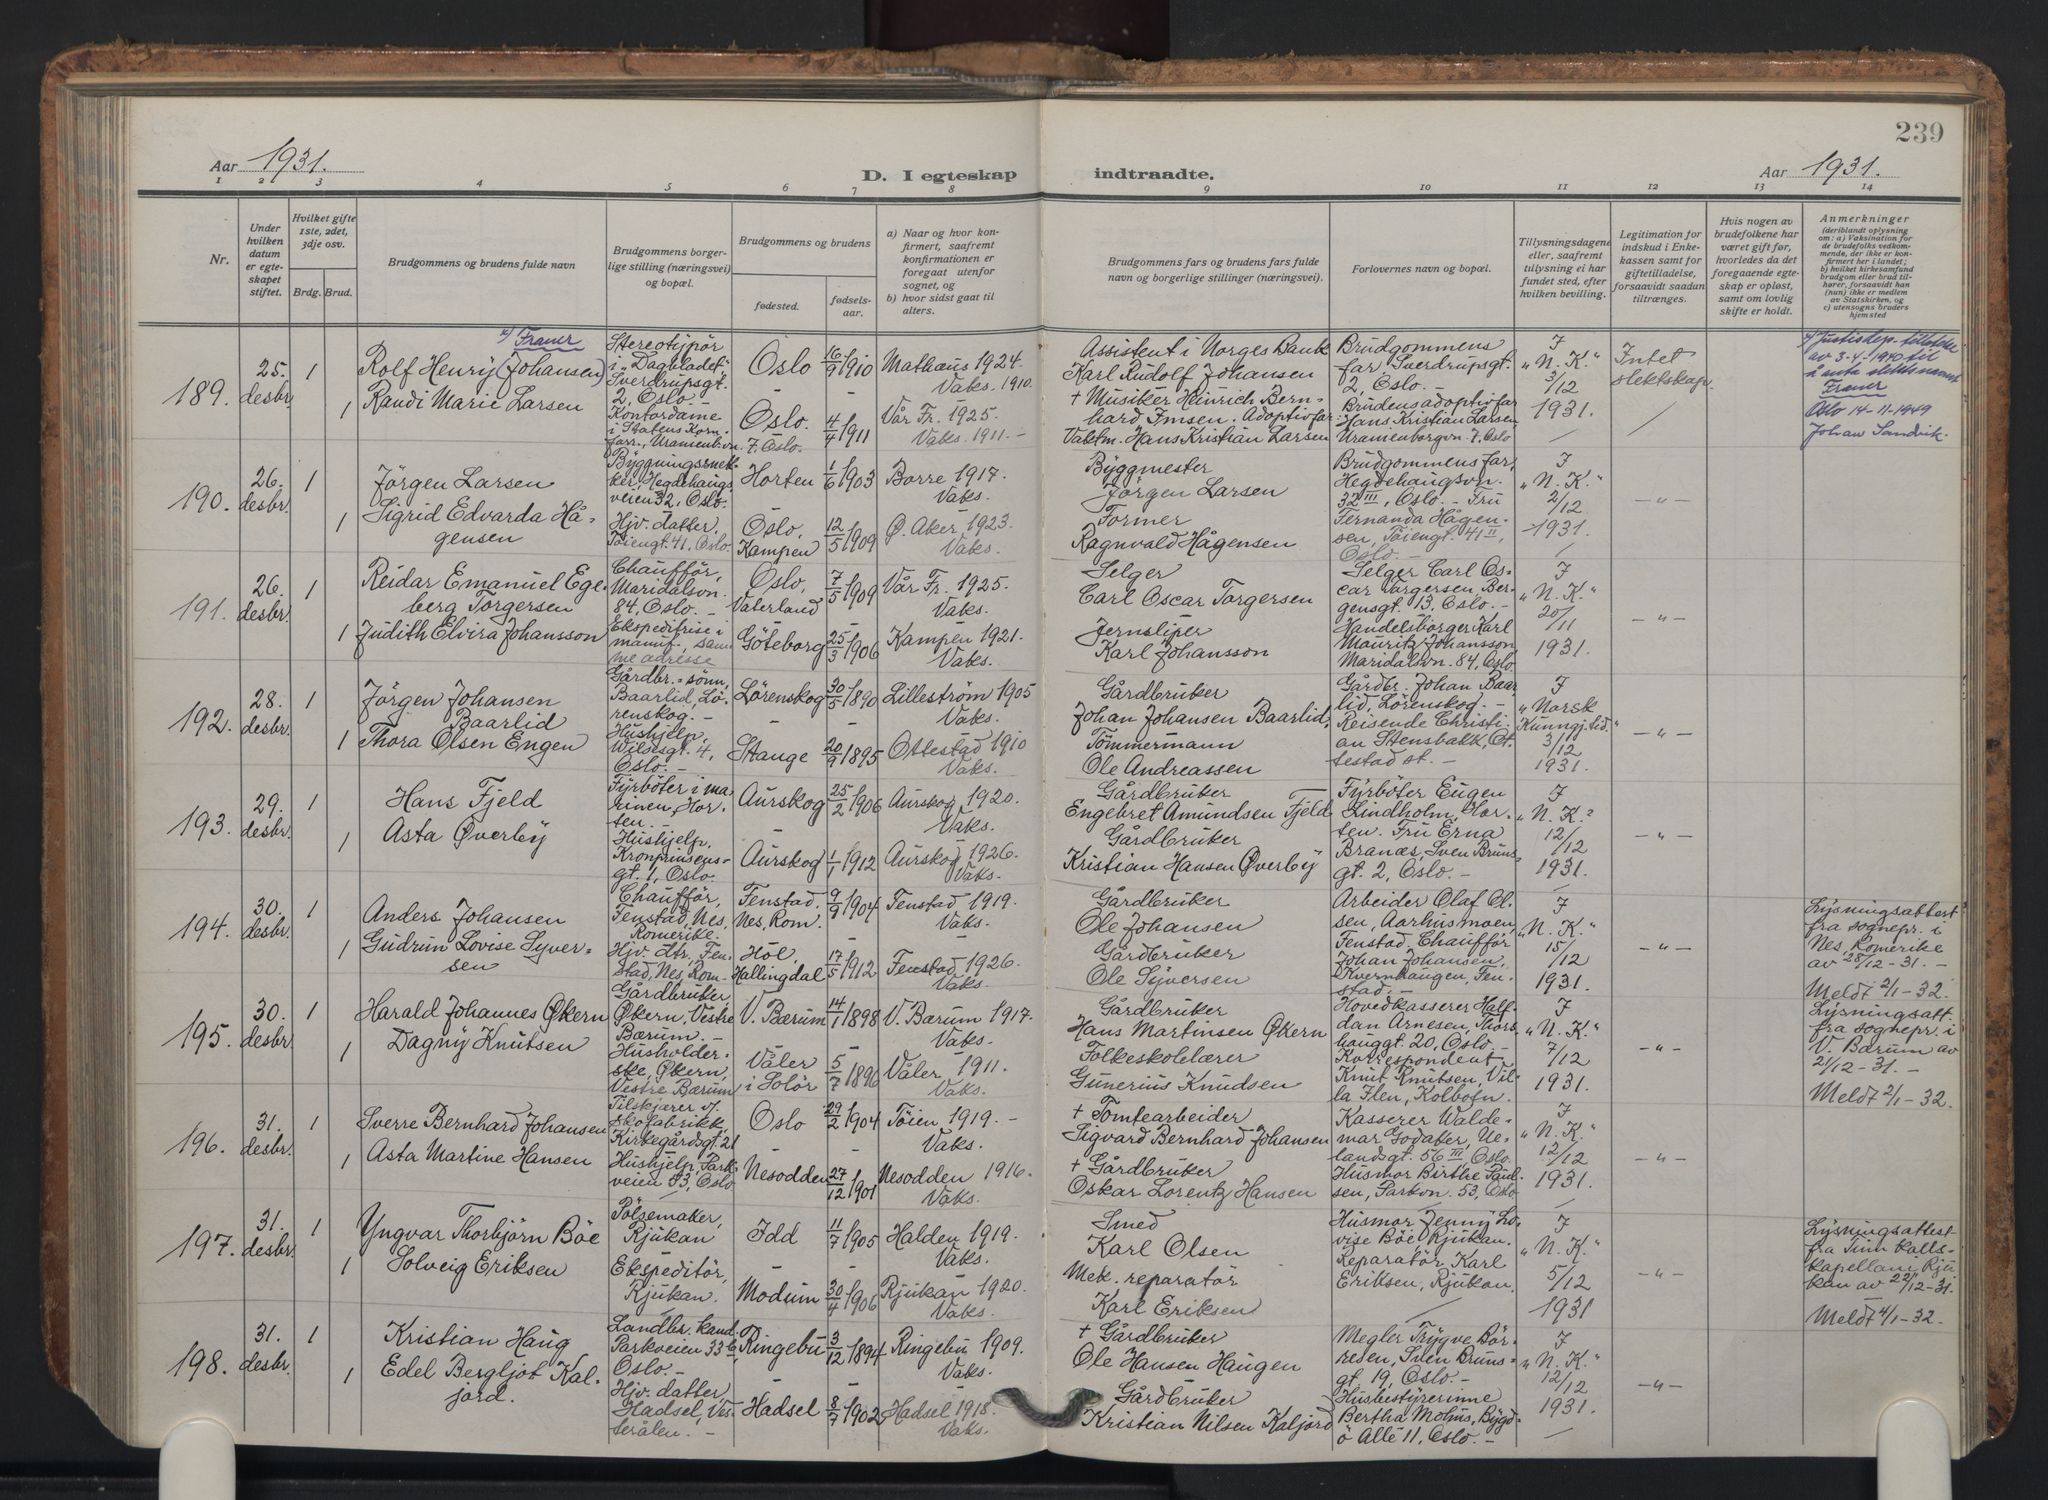 239
Aar 1931.
D. I egteskap indtraadte.
Aar 1931.
1 2 3 4 5 6 7 8 9 10 11 12 13 14
Nr.
Under hvilken datum er egteskapet stiftet.
Hvilket gifte 1ste, 2det, 3dje osv.
Brdg. Brud.
Brudgommens og brudens fulde navn
Brudgommens borgerlige stilling (næringsvei) og bopæl.
Brudgommens og brudens
fødested.
fødselsaar.
a) Naar og hvor konfirmert, saafremt konfirmationen er foregaat utenfor sognet, og
b) hvor sidst gaat til alters.
Brudgommens fars og brudens fars fulde navn og borgerlige stillinger (næringsvei).
Forlovernes navn og bopæl.
Tillysningsdagene eller, saafremt tillysning ei har fundet sted, efter hvilken bevilling.
Legitimation for indskud i Enkekassen samt for giftetilladelse, forsaavidt saadan tiltrænges.
Hvis nogen av brudefolkene har været gift før, hvorledes da det foregaaende egteskap er opløst, samt om lovlig skifte er holdt.
Anmerkninger
(deriblandt oplysning om: a) Vaksination for de brudefolks vedkommende, der ikke er konfirmert her i landet; b) hvilket kirkesamfund brudgom eller brud tilhører, forsaavidt han (hun) ikke er medlem av Statskirken, og c) utensogns bruders hjemsted
189.
25. desbr.
1
Franer
Rolf Henry (Johansen)
1 Randi Marie Larsen
Stereotypör
i "Dagbladet"
Sverdrupsgt.
2, Oslo.
Kontordame
i Statens Korn-
forr., Uranienbvn.
7. Oslo.
Oslo 16/9 1910
Oslo. 4/4 1911
Mathæus 1924.
Vaks. 1910.
Vår Fr. 1925.
Vaks. 1911. –
Assistent i Norges Bank
Karl Rudolf Johansen
+ Musiker Heinrich Bern-
hard Imsen. Adoptivfar:
Vaktm. Hans Kristian Larsen
Brudgommens
far, Sverdrupsgt.
2, Oslo. –
Brudens adoptivfar
Hans Kristian Larsen
Uranienborgvn. 7, Oslo
I
"N. K."
3/12
1931.
Intet
slektskap
Justisdep. tillatelse
av 3-4-1940 til
å anta slektsnavnet
Franer
Oslo 14-11-1949
Johan Sandvik.
190.
26. desbr.
1
Jörgen Larsen
1 Sigrid Edvarda Hå-
gensen
Byggningssnek-
ker, Hegdehaugs
veien 32, Oslo.
Hjv. datter,
Töiengt. 41, Oslo.
Horten 1/6 1903
Oslo, Kampen 12/5 1909
Borre 1917.
Vaks.
Ø. Aker, 1923.
Vaks.
Byggmester
Jörgen Larsen
Former
Ragnvald Hågensen
Brudgommens far,
Hegdehaugsvn.
32 III, Oslo. – Fru
Fernanda Hågen-
sen, Töiengt. 41 II,
Oslo. –
I
"N. K."
2/12
1931.
– " –
191.
26. desbr.
1
Reidar Emanuel Ege-
berg Torgersen
1 Judith Elvira Johansson
Chaufför,
Maridalsvn.
84, Oslo. –
Ekspeditrise i
manuf., sam-
me adresse
Oslo, Vaterland 7/5 1909
Göteborg 25/3 1906
Vår Fr. 1925.
Vaks.
Kampen 1921.
Vaks.
Selger
Carl Oscar Torgersen
Jernsliper
Karl Johansson
Selger Carl Os-
car Torgersen, Ber-
gensgt. 13, Oslo. –
Handelsborger Karl
Mauritz Johansson
Maridalsvn. 84, Oslo
I
"N. K."
20/11
1931.
– " –
192.
28. desbr.
1
Jörgen Johansen
Baarlid
1 Thora Olsen Engen
Gårdbr.=sönn,
Baarlid, Lö-
renskog. –
Hushjelp,
Wilsesgt. 4,
Oslo. –
Lörenskog 30/5 1890
Stange 20/9 1895
Lilleström 1905
Vaks.
Ottestad 1910
Vaks.
Gårdbruker
Johan Johansen Baarlid.
Tömmermann
Ole Andreassen
Gårdbr. Johan Baar-
lid, Lörenskog. –
Reisende Christi-
an Stensbakk, Ot-
testad st. –
I
"Norsk
Kunngj. tid."
3/12
1931.
– " –
193.
29. desbr.
1
Hans Fjeld
1 Asta Øverby
Fyrböter i ma-
rinen, Hor-
ten. –
Hushjelp,
Kronprinsens-
gt. 1, Oslo.
Aurskog 25/2 1906
Aurskog 1/1 1912
Aurskog 1920.
Vaks.
Aurskog 1926.
Vaks.
Gårdbruker
Engebret Amundsen Fjeld
Gårdbruker
Kristian Hansen Øverby
Fyrböter Eugen
Lindholm, Hor-
ten. Fru Erna
Branæs, Sven Bruns-
gt. 2, Oslo. –
I
"N. K."
12/12
1931.
– " –
194.
30. desbr.
1
Anders Johansen
1 Gudrun Lovise Syver-
sen
Chaufför,
Fenstad, Nes,
Romerike.
Hjv. dtr., Fen-
stad, Nes, Rom.
Fenstad, Nes, Rom. 9/9 1904
Hol, Hallingdal 17/5 1912
Fenstad 1919.
Vaks.
Fenstad 1926.
Vaks.
Gårdbruker
Ole Johansen
Gårdbruker
Ole Syversen
Arbeider Olaf Ol-
sen, Aarhusmoen,
Fenstad. Chaufför
Johan Johansen,
Kvernhaugen, Fen-
stad. –
I
"N. K."
15/12
1931.
– " –
Lysningsattest
fra sognepr. i
Nes, Romerike
av 28/12-31. –
Meldt 2/1-32.
195.
30. desbr.
1
Harald Johannes Økern
1 Dagny Knutsen
Gårdbruker,
Økern, Vestre
Bærum. –
Husholder-
ske, Økern,
Vestre Bærum
V. Bærum 14/1 1898
Våler i Solör 5/7 1896
V. Bærum 1917.
Vaks.
Våler 1911.
Vaks.
Gårdbruker
Hans Martinsen Økern
Folkeskolelærer
Gunerius Knudsen
Hovedkasserer Half-
dan Arnesen, Thors-
hauggt. 20, Oslo. –
Korrespondent
Knut Knutsen, Vil-
la Flen, Kolbotn.
I
"N. K."
7/12
1931.
– " –
Lysningsatt.
fra sognepr. i
V. Bærum av
21/12-31. –
Meldt 2/1-32.
196.
31. desbr.
1
Sverre Bernhard Johansen
1 Asta Martine Hansen
Tilskjærer v.
skofabrikk,
Kirkegårdsgt. 21
Hushjelp, Park-
veien 53, Oslo
Oslo 29/2 1904
Nesodden 27/12 1901
Töien 1919. –
Vaks.
Nesodden 1916.
Vaks.
+ Tomtearbeider
Sigvard Bernhard Johansen
+ Gårdbruker
Oskar Lorentz Hansen
Kasserer Walde-
mar Godater, Ue-
landsgt. 56 III, Oslo.
Husmor Birthe Paul-
sen, Parkvn. 53, Oslo
I
"N. K."
12/12
1931.
– " –
197.
31. desbr.
1
Yngvar Thorbjörn Böe
1 Solveig Eriksen
Pölsemaker,
Rjukan
Ekspeditör,
Rjukan.
Idd 11/7 1905
Modum 30/4 1906
Halden 1919.
Vaks.
Rjukan 1920.
Vaks.
Smed
Karl Olsen
Mek. reparatör
Karl Eriksen
Husmor Jenny Lo-
vise Böe, Rjukan.
Reparatör Karl
Eriksen, Rjukan.
I
"N. K."
5/12
1931
– " –
Lysningsattest
fra Tinn kalls-
kapellan, Rju-
kan av 22/12-31.
Meldt 4/1-32.
198.
31. desbr.
1
Kristian Haug
1 Edel Bergljot Kal-
jord.
Landbr. kand.
Parkveien 33 b,
Oslo. –
Hjv. datter
Hadsel, Ves-
terålen. –
Ringebu 3/12 1894
Hadsel 8/7 1902
Ringebu 1909.
Vaks.
Hadsel 1918.
Vaks.
+ Gårdbruker
Ole Hansen Haugen
Gårdbruker
Kristian Nilsen Kaljord
Megler Trygve Bör-
resen, Sven Bruns-
gt. 19, Oslo. –
Husbestyrerinne
Bertha Mohus, Bygd-
ö Allé 11, Oslo. –
I
"N. K."
12/12
1931.
– " –